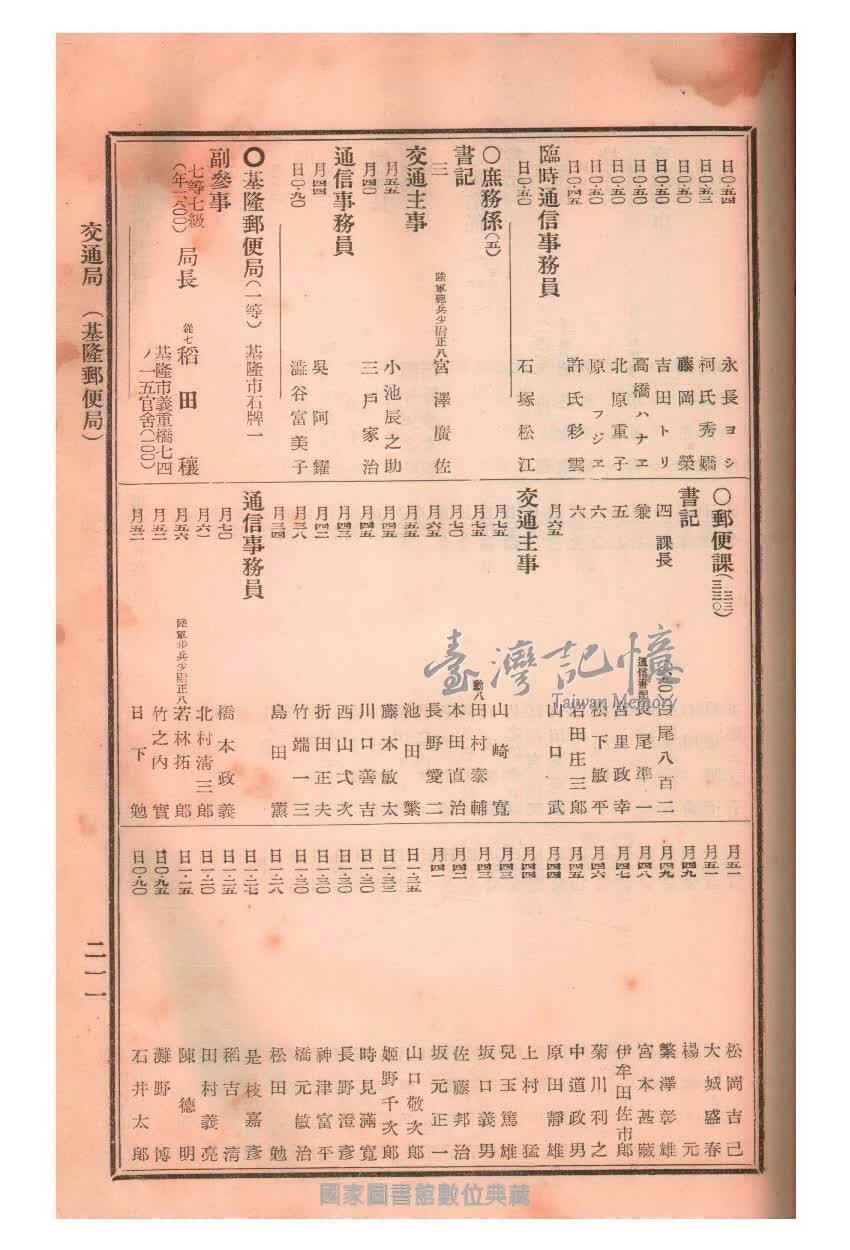 日〇・五四 永長ヨシ
日〇・五三 柯氏秀嬌
日〇・五〇 藤岡榮
日〇・五〇 吉田トリ
日〇・五〇 高橋ハナヱ
日〇・五〇 北原重子
日〇・五〇 原フジヱ
日〇・四五 許氏彩雲
臨時通信事務員
日〇・五〇 石塚松江
〇庶務係(五)
書記
三 陸軍砲兵少尉正八 宮澤廣佐
交通主事
月五五 小池辰之助
月四〇 三戶家治
通信事務員
月四四 吳阿耀
日〇・九〇 澁谷富美子
〇基隆郵便局(一等) 基隆市石牌一
副參事
七等七級(年一八〇〇) 局長 從七 稻田穰
基隆市義重橋七四ノ一五官舍(一〇〇)
〇郵便課(三三三三〇)
書記
四 課長 尾八百二
兼 通信書記 長尾準一
五 宮里政幸
六 松下敏平
六 岩田庄三郎
月六五 山口武
交通主事
月七五 山崎寬
月七五 勳八 田村泰輔
月七〇 本田直治
月六五 長野愛二
月五五 池田繁
月四五 藤本敏太
月四五 川口善吉
月四三 西山弍次
月四二 折田正夫
月三八 竹端一三
月三四 島田薰
通信事務員
月七〇 橋本政義
月六一 北村淸三郎
月五六 陸軍步兵少尉正八 若林拓郎
月五二 竹之內實
月五二 日下勉
月五一 松岡吉己
月五一 大城盛春
月四九 楊元
月四九 繁澤彰雄
月四八 宮本甚藏
月四七 伊牟田佐市郎
月四六 菊川利之
月四五 中道政男
月四四 原田靜雄
月四四 上村猛
月四三 兒玉篤雄
月四三 坂口義男
月四二 佐藤邦治
月四一 坂元正一
日一・三五 山口敬次郎
日一・三三 姬野千次郎
日一・三〇 時見滿寬
日一・三〇 長野澄彥
日一・三〇 神津富平
日一・三〇 橋元敏治
日一・二八 松田勉
日一・二七 是枝嘉彥
日一・二五 稻吉淸
日一・二〇 田村義亮
日一・一五 陳德明
日〇・九五 灘野博
日〇・九〇 石井太郎
交通局 (基隆郵便局)
二一一
臺灣記憶
Taiwan Memory
國家圖書館數位典藏